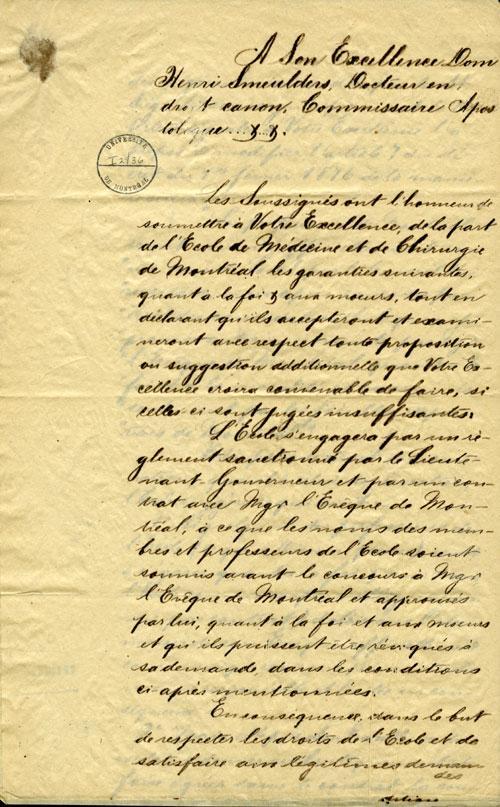 A Son Excellence Dom
Henri Smeulders, Docteur en
droit canon, Commissaire Apos
tolique
UNIVERSITÉ
DE MONTRÉAL
Les Soussignés ont l'honneur de
soumettre à Votre Excellence, de la part
de l'Ecole de Médecine et de Chirurgie
de Montréal les garanties suivantes,
quant à la foi & aux moeurs, tout en
déclarant qu'ils accepteront et exami-
neront avec respect toute proposition
ou suggestion additionnelle que Votre Ex-
cellence croira convenable de faire, si
celles ci sont jugées insuffisantes.
L'Ecole s'engagera par un rè-
glement sanctionné par le Lieute-
nant-Gouverneur et par un con-
trat avec Mgr l'Evêque de Mon-
tréal, à ce que les noms des mem-
bres et professeurs de l'Ecole soient
soumis avant le concours à Mgr
l'Evêque de Montréal et approuvés
par lui, quant à la foi et aux moeurs
et qu'ils puissent être révoqués à
sa demande, dans les conditions
ci-après mentionnées.
En conséquence, dans le but
de respecter les droits de l'Ecole et de
satisfaire aux légitimes deman
des